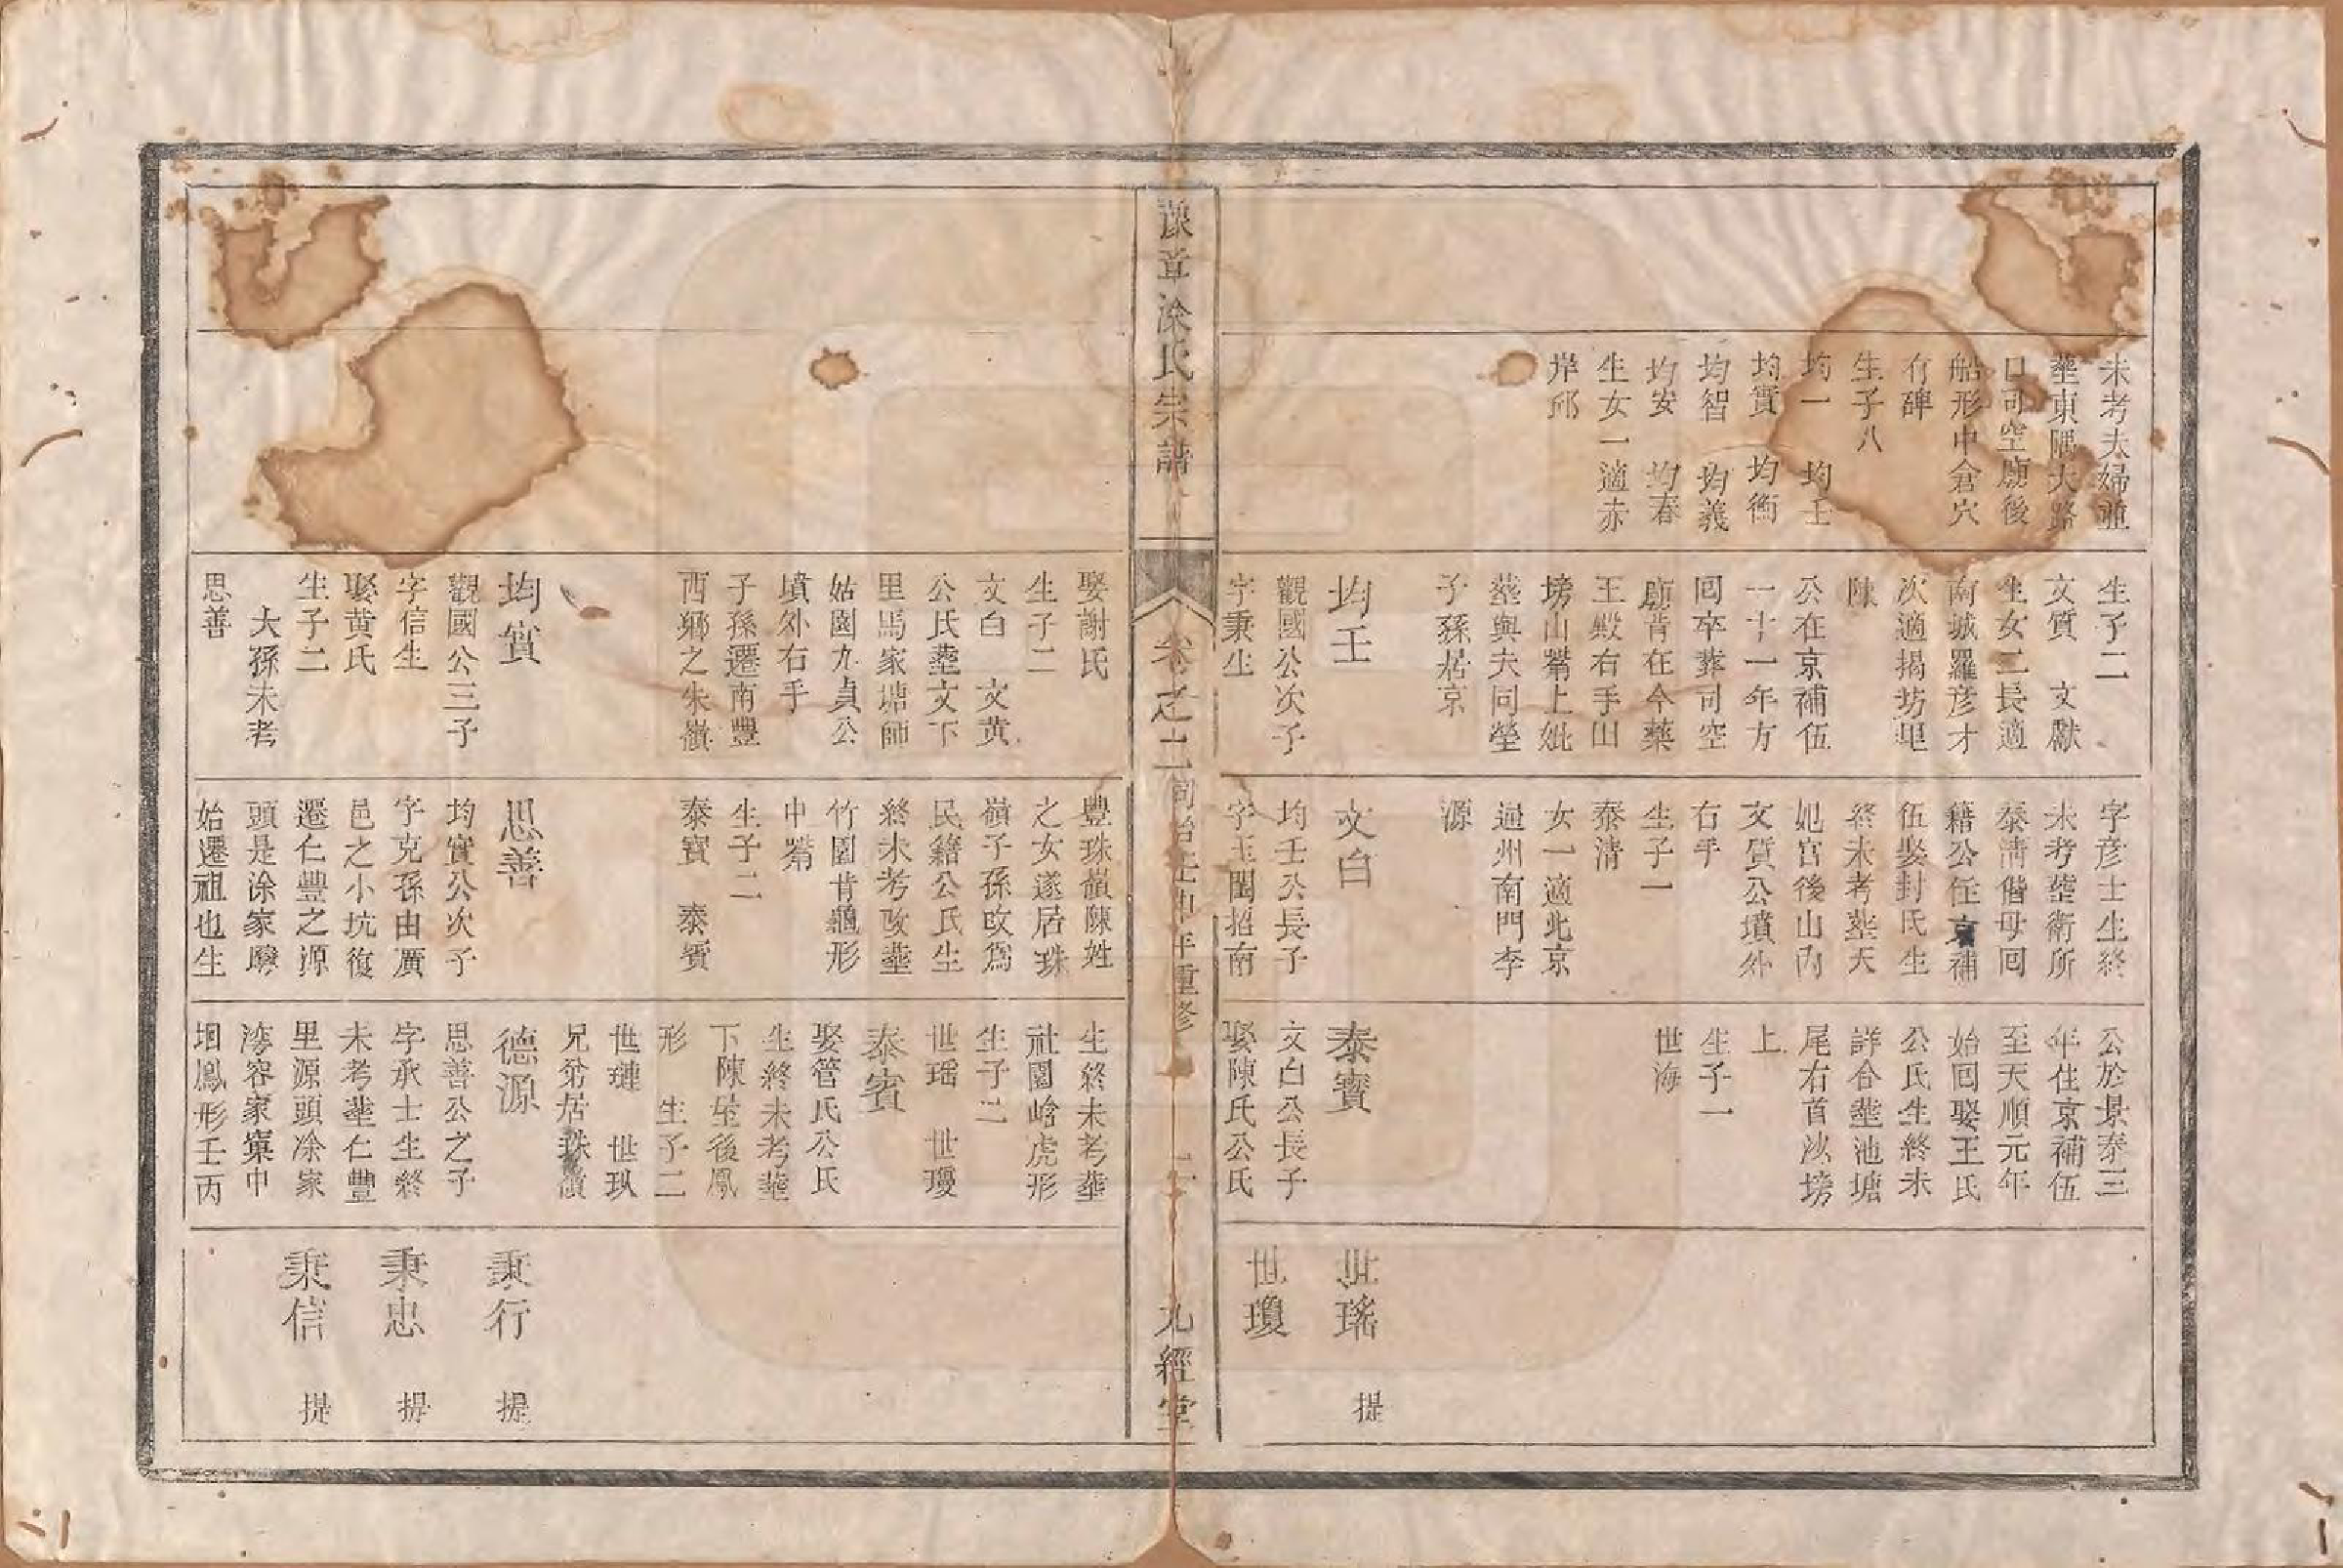 未考夫婦並
塟東隅大路
口司空廟後
船形中倉穴
有碑
生子八
均一　均壬
均實　均衡
均智　均義
均安　均春
生女一適赤
岸邱
生子二
文質　文獻
生女二長適
南城羅彦才
次適揭坊里
陳
公在京補伍
一十一年方
回卒葬司空
廟背在今藥
王殿右手山
塝山觜上妣
塟與夫同塋
子孫居京
均壬
觀國公次子
字秉生
字彦士生終
未考塟衛所
泰清偕母回
籍公任京補
伍娶封氏生
終未考塟天
妃宫後山内
文質公墳外
右手
生子一
泰清
女一適北京
通州南門李
源
文白
均壬公長子
字玉閏招南
公於景泰三
年住京補伍
至天順元年
始回娶王氏
公氏生終未
詳合塟池塘
尾右首沙塝
上
生子一
世海
泰寳
文白公長子
娶陳氏公氏
世瑤　提
世瓊
豫章涂氏宗譜
卷之二
同治壬申年重修
九經堂
娶謝氏
生子二
文白　文黄
公氏塟文下
里馬家塘師
姑園九貞公
墳外右手
子孫遷南豐
西鄉之朱嶺
均實
觀國公三子
字信生
娶黄氏
生子二
大孫未考
思善
豐珠嶺陳姓
之女遂居珠
嶺子孫改爲
民籍公氏生
終未考改塟
竹園背龜形
中觜
生子二
泰寳　泰賓
思善
均實公次子
字克孫由廣
邑之小坑復
遷仁豐之源
頭是涂家𡑞
始遷祖也生
生終未考塟
社園㟅虎形
生子二
世瑶　世瓊
泰賓
娶管氏公氏
生終未考塟
下陳坐後鳳
形　生子二
世璉　世玖
兄弟居珠嶺
德源
思善公之子
字承士生終
未考塟仁豐
里源頭凃家
容家窠中
堌鳳形壬丙
秉行　提
秉忠　提
秉信　提